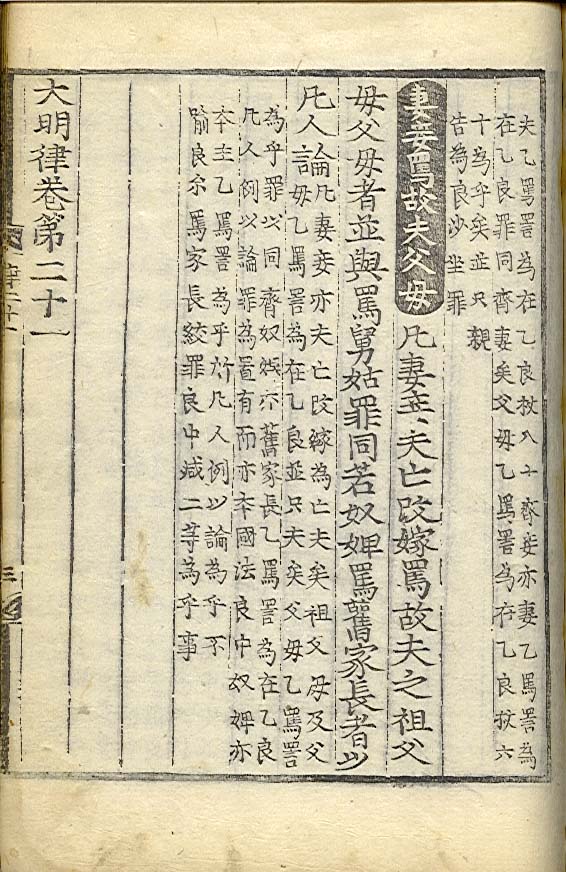 夫乙罵詈為在乙良杖八十齊妾亦妻乙罵詈為
在乙良罪同齊妻矣父母乙罵詈為在乙良杖六
十為乎矣並只親
告為良沙坐罪
妻妾罵故夫父母 凡妻妾夫亡改嫁罵故夫之祖父
母父母者並與罵舅姑罪同若奴婢罵舊家長者以
凡人論
凡妻妾亦夫亡改嫁為亡夫矣祖父母及父
母乙罵詈為在乙良並只夫矣父母乙罵詈
為乎罪以同齊奴婢亦舊家長乙罵詈為在乙良
凡人例以論罪為置有而亦本國法良中奴婢亦
本主乙罵詈為乎於凡人例以論為乎不
喻良尔罵家長絞罪良中減二等為乎事
大明律卷第二十一